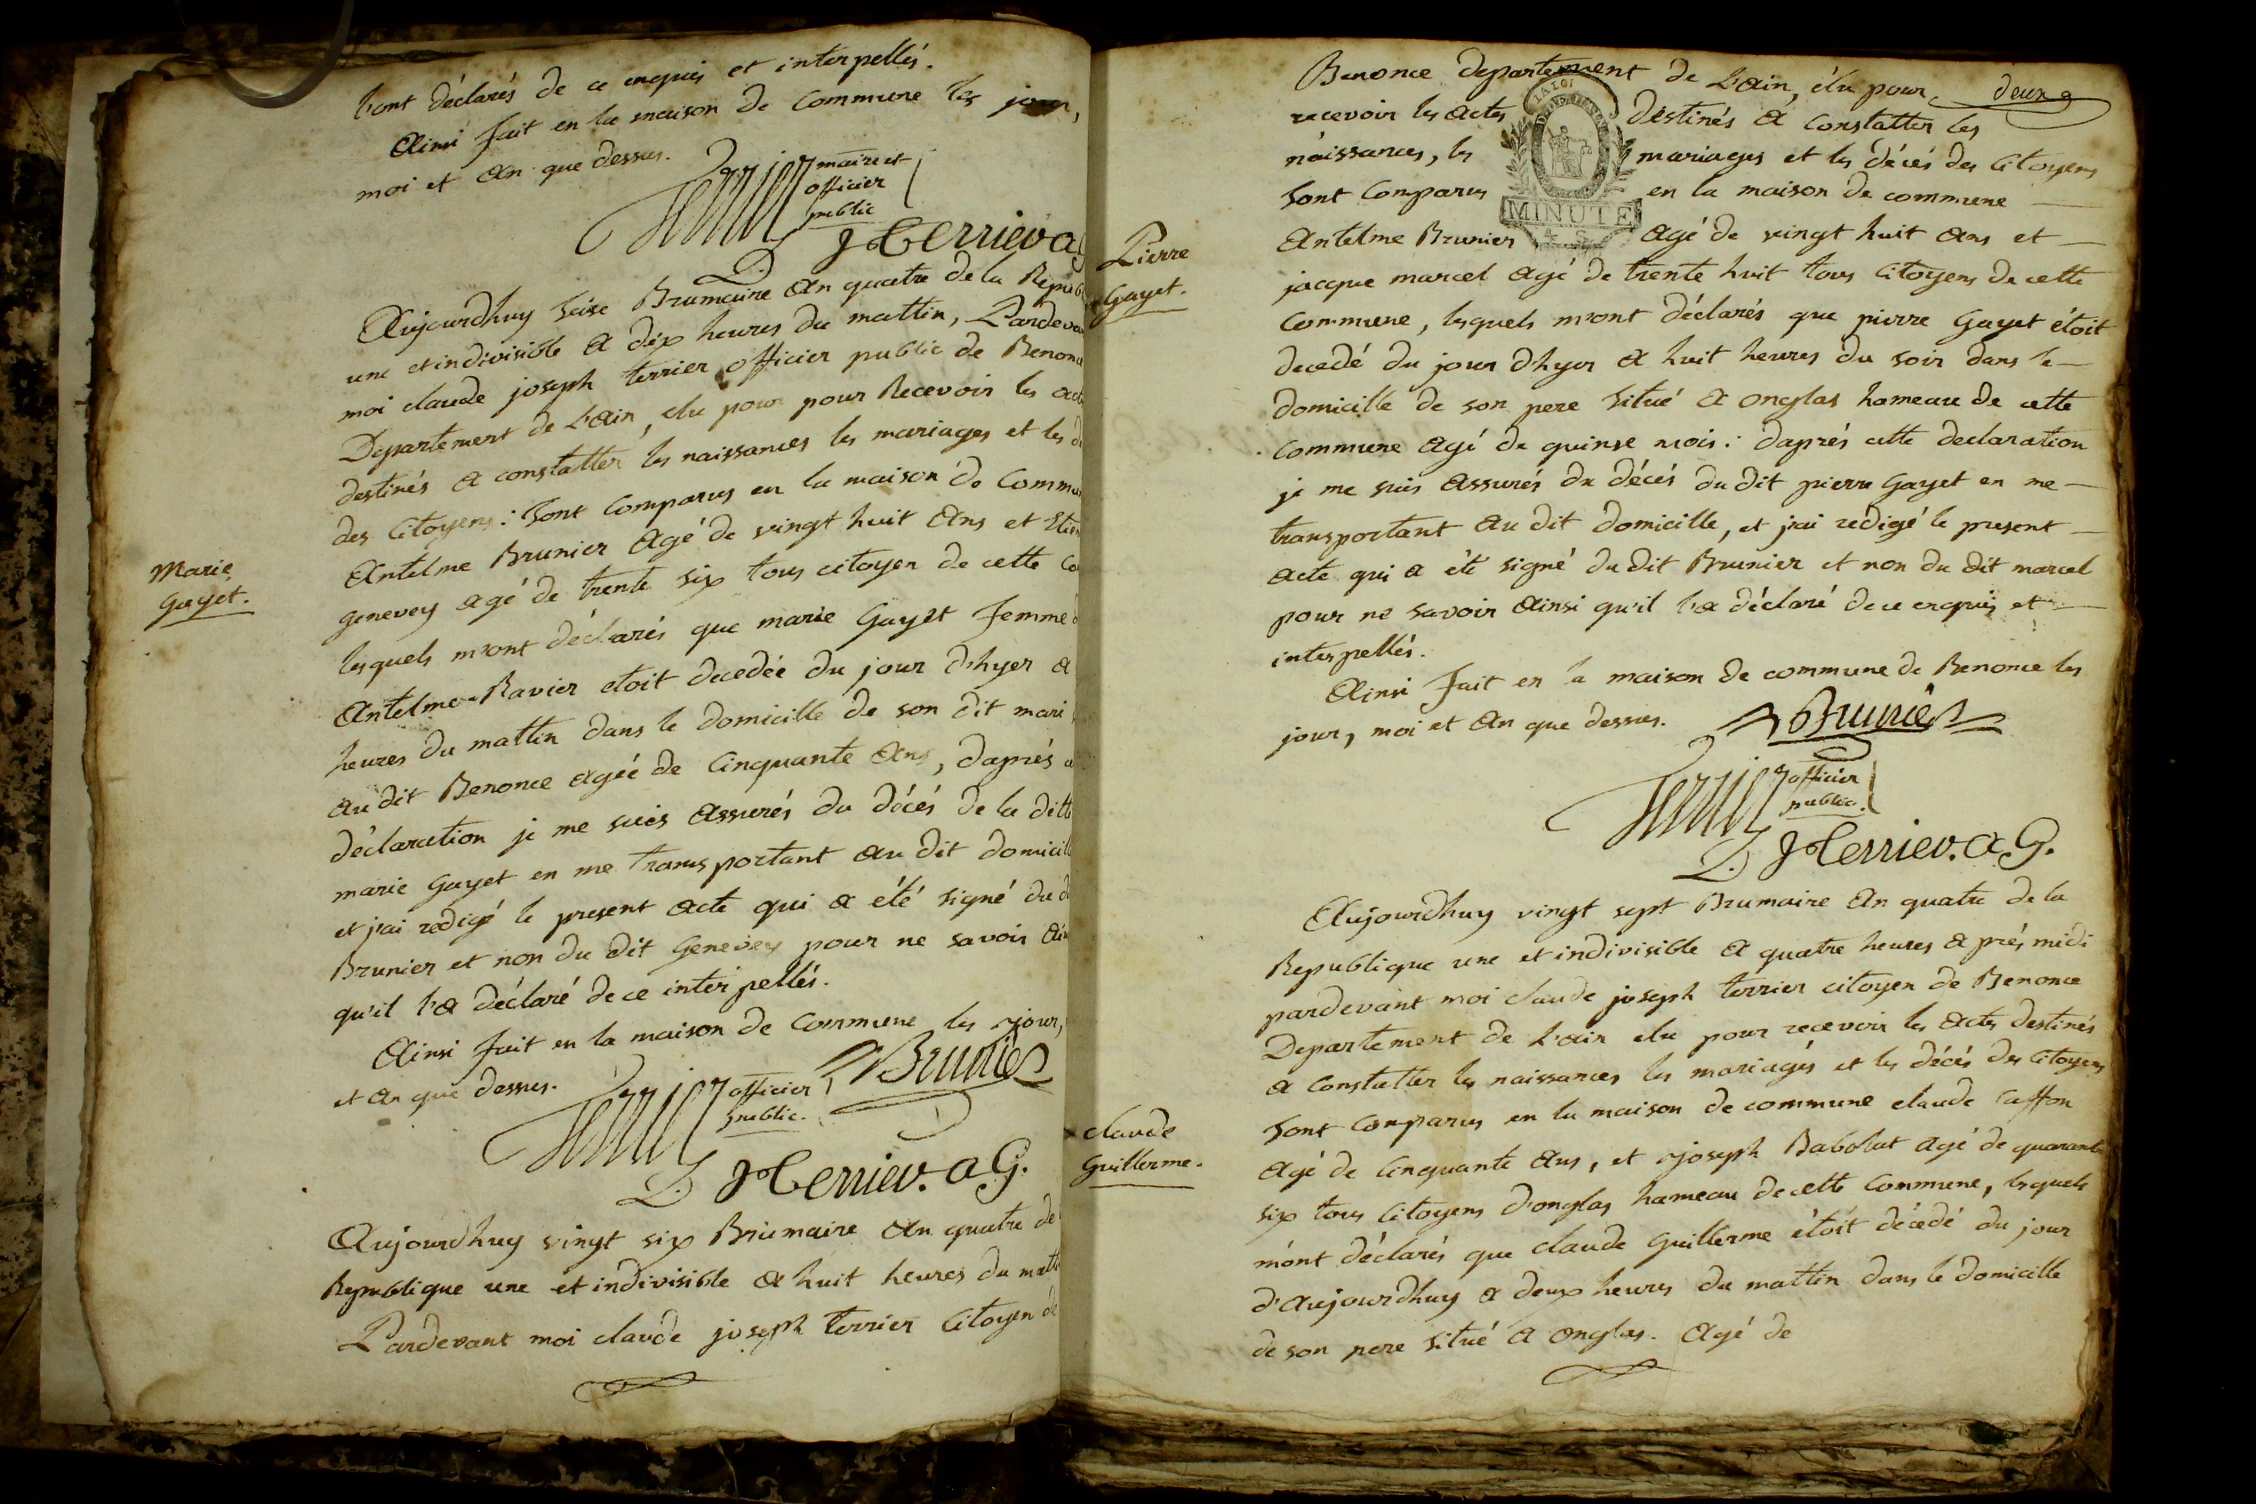 l'ont déclarés de ce enquis et interpellés.
Ainsi fait en la maison de commune les jour,
moi et an que dessus.
Terrier maire et
officier
public
J Terrier. a
Marie
Gayet.
Aujourdhuy seise Brumaire an quatre de la Republ
une et indivisible a dix heures du mattin, Pardeva
moi claude joseph terrier officier public de Benonc
Departement de L'ain, elu pour pour Recevoir les act
destinés a constatter les naissances les mariages et les d
des Citoyens: sont Comparus en la maison de Commu
Antelme Brunier agé de vingt huit ans et Etien
genevey agé de trente six tous citoyen de cette Co
lesquels m'ont déclarés que marie Gayet femme d
Antelme Ravier etoit decedée du jour d'hyer a
heures du mattin dans le domicille de son dit mari
au dit Benonce agée de Cinquante ans, daprés c
déclaration je me suis assurés du décés de la ditte
marie Gayet en me transportant au dit domicill
et j'ai redigé le present acte qui a été signé du d
Brunier et non du dit Genevey pour ne savoir ain
qu'il l'a déclaré de ce interpellés.
Ainsi fait en la maison de Commune les jour,
et an que dessus.
Terrier officier
public.
Brunier
J Terrier. a G.
Aujourdhuy vingt six Brumaire an quatre de
Republique une et indivisible a huit heures du matt
Pardevant moi claude joseph terrier Citoyen de
deux
Benonce departement de L'ain, élu pour
recevoir les actes destinés a constatter les
naissances, les mariages et les décés des Citoyens
sont Comparus en la maison de commune
Antelme Brunier agé de vingt huit ans et
LA LOI
MINUTE
4 S.
Pierre
Gayet.
jacque marcel agé de trente huit tous Citoyens de cette
Commune, lesquels m'ont déclarés que pierre Gayet étoit
decedé du jour d'hyer a huit heures du soir dans le
domicille de son pere situé a onglas hameau de cette
commune agé de quinse mois: daprés cette declaration
je me suis assurés du décés du dit pierre Gayet en me
transportant au dit domicille, et j'ai redigé le present
acte qui a été signé du dit Brunier et non du dit marcel
pour ne savoir ainsi qu'il l'a déclaré de ce enquis et
interpellés.
Ainsi fait en la maison de commune de Benonce les
jour, moi et an que dessus.
Brunier
Terrier officier
public.
J Terrier. a G.
Aujourdhuy vingt sept Brumaire an quatre de la
Republique une et indivisible a quatre heures aprés midi
pardevant moi claude joseph terrier citoyen de Benonce
Departement de L'ain elu pour recevoir les actes destinés
a constatter les naissances les mariages et les décés des Citoyens
sont Comparus en la maison de commune claude Caffon
claude
Guillerme.
agé de Cinquante ans, et joseph Babolat agé de quarante
six tous Citoyens d'onglas hameau de cette Commune, lesquels
m'ont déclarés que claude Guillerme étoit décedé du jour
d'Aujourdhuy a deux heures du mattin dans le domicille
de son pere situé a onglas. Agé de